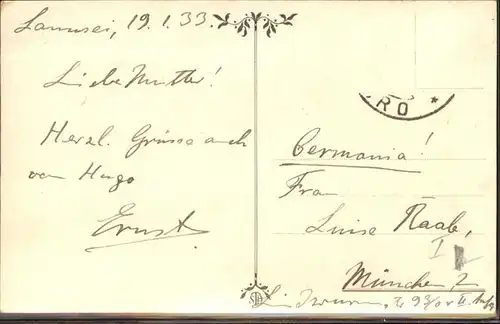 Lanusei, 19.1.33.
Liebe Mutter!
Herzl. Grüsse auch
von Hugo
Ernst
RO *
Germania!
Frau
Luise Raab,
I
München 2